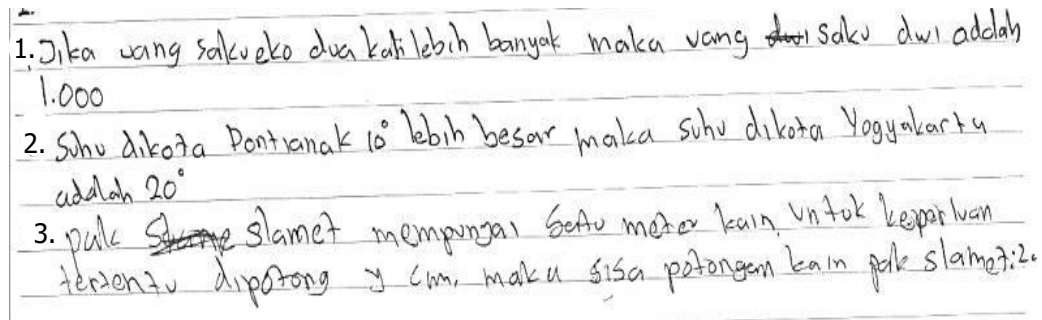 1. Jika uang saku eko dua kali lebih banyak maka uang saku dwi adalah
1.000
2. Suhu dikota Pontianak 10° lebih besar maka suhu dikota Yogyakarta
adalah 20°
3. pak slamet mempunyai satu meter kain, untuk keperluan
tertentu dipotong y cm, maka sisa potongan kain pak slamet: